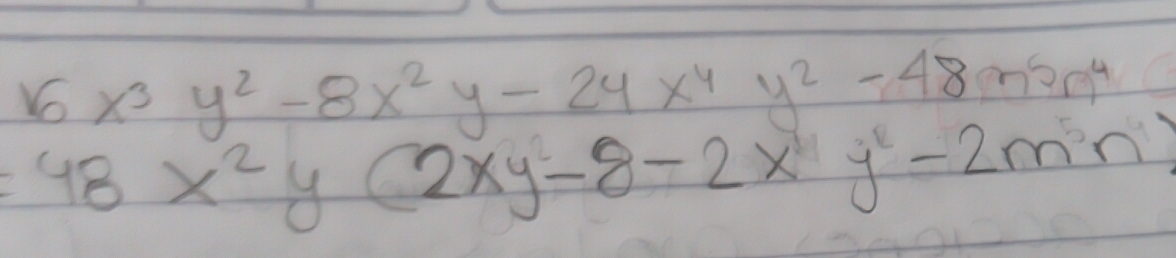 16 x³ y² - 8x² y - 24 x⁴ y² - 48 m⁵ n⁴
= 48 x² y (2xy² - 8 - 2x⁴ y² - 2m⁵n⁴)